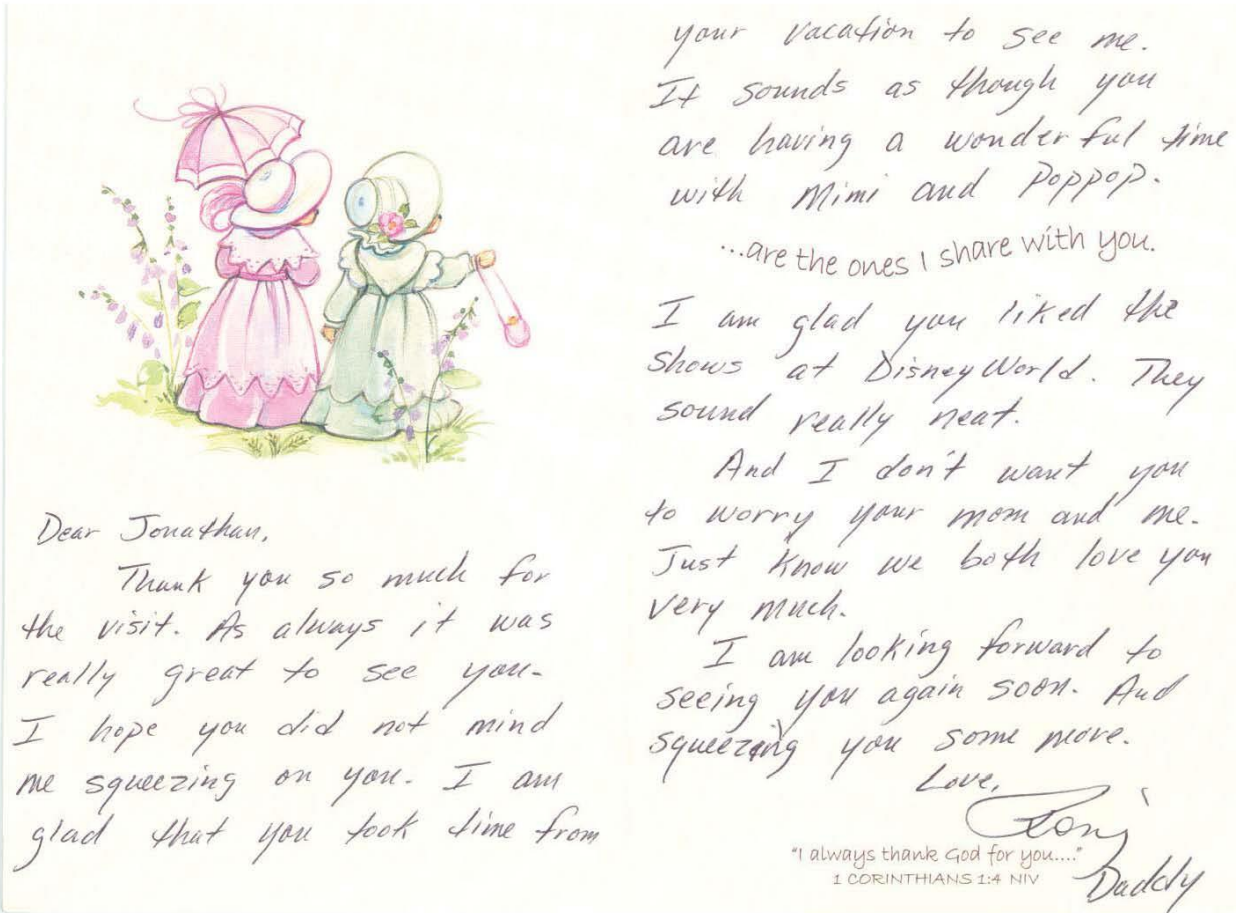 Dear Jonathan,
Thank you so much for
the visit. As always it was
really great to see you.
I hope you did not mind
me squeezing on you. I am
glad that you took time from
your vacation to see me.
It sounds as though you
are having a wonderful time
with Mimi and Poppop.
...are the ones I share with you.
I am glad you liked the
shows at Disney World. They
sound really neat.
And I don't want you
to worry your mom and me.
Just know we both love you
very much.
I am looking forward to
seeing you again soon. And
squeezing you some more.
Love,
"I always thank God for you...."
1 CORINTHIANS 1:4 NIV
Daddy